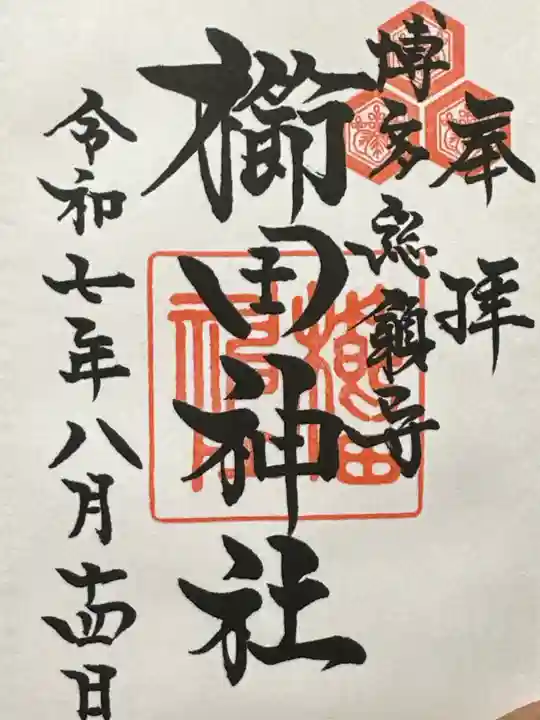 奉拝
博多総鎮守
櫛田神社
令和七年八月十四日